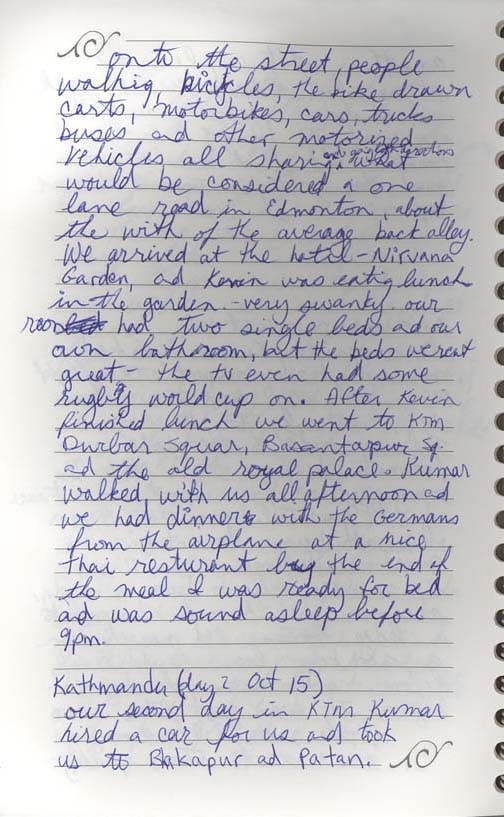 onto the street, people
walking, bicycles, the bike drawn
carts, motorbikes, cars, trucks
buses and other motorized
vehicles all sharing, what
would be considered a one
lane road in Edmonton, about
the with of the average back alley.
We arrived at the hotel - Nirvana
Garden, ad Kevin was eatig lunch
in the garden - very swanky. our
room had two single beds ad our
own bathroom, but the beds wereat
great - the tv even had some
rugby world cup on. After Kevin
finished lunch we went to KTM
Durbar Squar, Basantapur Sq.
ad the old royal palace. Kumar
walked with us all afternoon ad
we had dinner with the Germans
from the airplane at a nice
Thai resturant by the end of
the meal I was ready for bed
ad was sound asleep before
9pm.
Kathmandu (day 2 Oct 15)
our second day in KTM Kumar
hired a car for us and took
us to Bhkapur ad Patan.